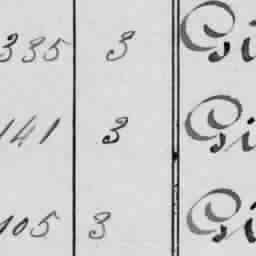 335 3 Gi
141 3 Gi
105 3 Gi